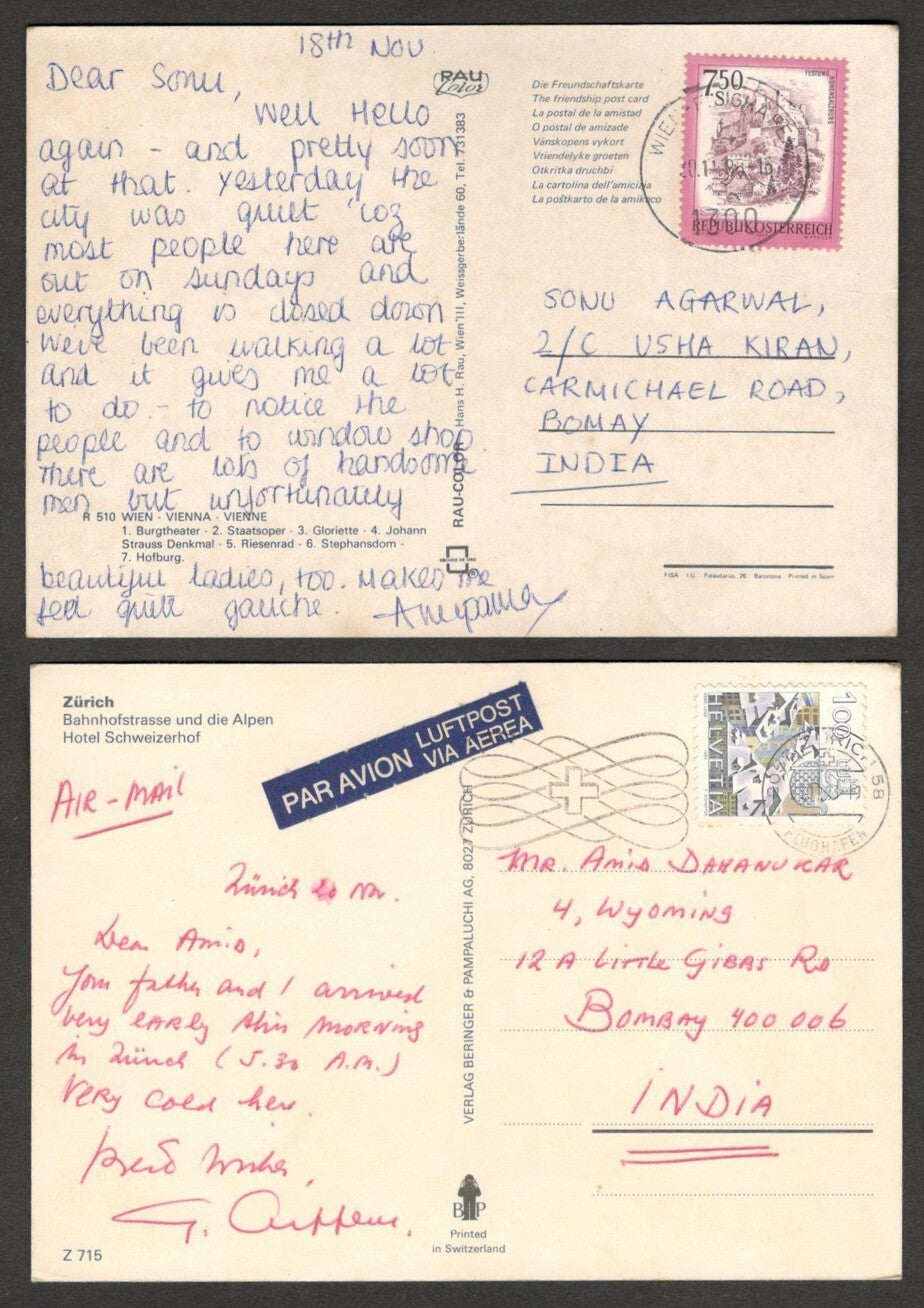 18th Nov.
Dear Sonu,
Well Hello
again - and pretty soon
at that. Yesterday the
city was quiet 'coz
most people here are
out on sundays and
everything is closed down
We've been walking a lot
and it gives me a lot
to do - to notice the
people and to window shop
There are lots of handsome
men but unfortunately
R 510 WIEN - VIENNA - VIENNE
1. Burgtheater - 2. Staatsoper - 3. Gloriette - 4. Johann
Strauss Denkmal - 5. Riesenrad - 6. Stephansdom -
7. Hofburg.
beautiful ladies, too. Makes me
feel quite gauche. Anupama
RAU
Color
RAU-COLOR Hans H. Rau, Wien III, Weissgerberlände 60, Tel. 731383
Die Freundschaftskarte
The friendship post card
La postal de la amistad
O postal de amizade
Vänskopens vykort
Vriendelyke groeten
Otkritka druchbi
La cartolina dell'amicizia
La poŝtkarto de la amikeco
7.50
FESTUNG HOHENSALZBURG
REPUBLIK ÖSTERREICH
1300
SONU AGARWAL,
2/C USHA KIRAN,
CARMICHAEL ROAD,
BOMAY
INDIA
FISA I.G. Palaudarias, 26 Barcelona Printed in Spain
Zürich
Bahnhofstrasse und die Alpen
Hotel Schweizerhof
PAR AVION LUFTPOST
VIA AEREA
AIR-MAIL
Zürich 20 Nov.
Dear Amio,
Your father and I arrived
very early this morning
in Zürich (5.30 A.M.)
Very cold here.
Best wishes,
Z 715
VERLAG BERINGER & PAMPALUCHI AG, 8027 ZÜRICH
BP
Printed
in Switzerland
100
HELVETIA
58
FLUGHAFEN
MR. AMIO DAHANUKAR
4, WYOMING
12 A LITTLE GIBBS RD
BOMBAY 400 006
INDIA